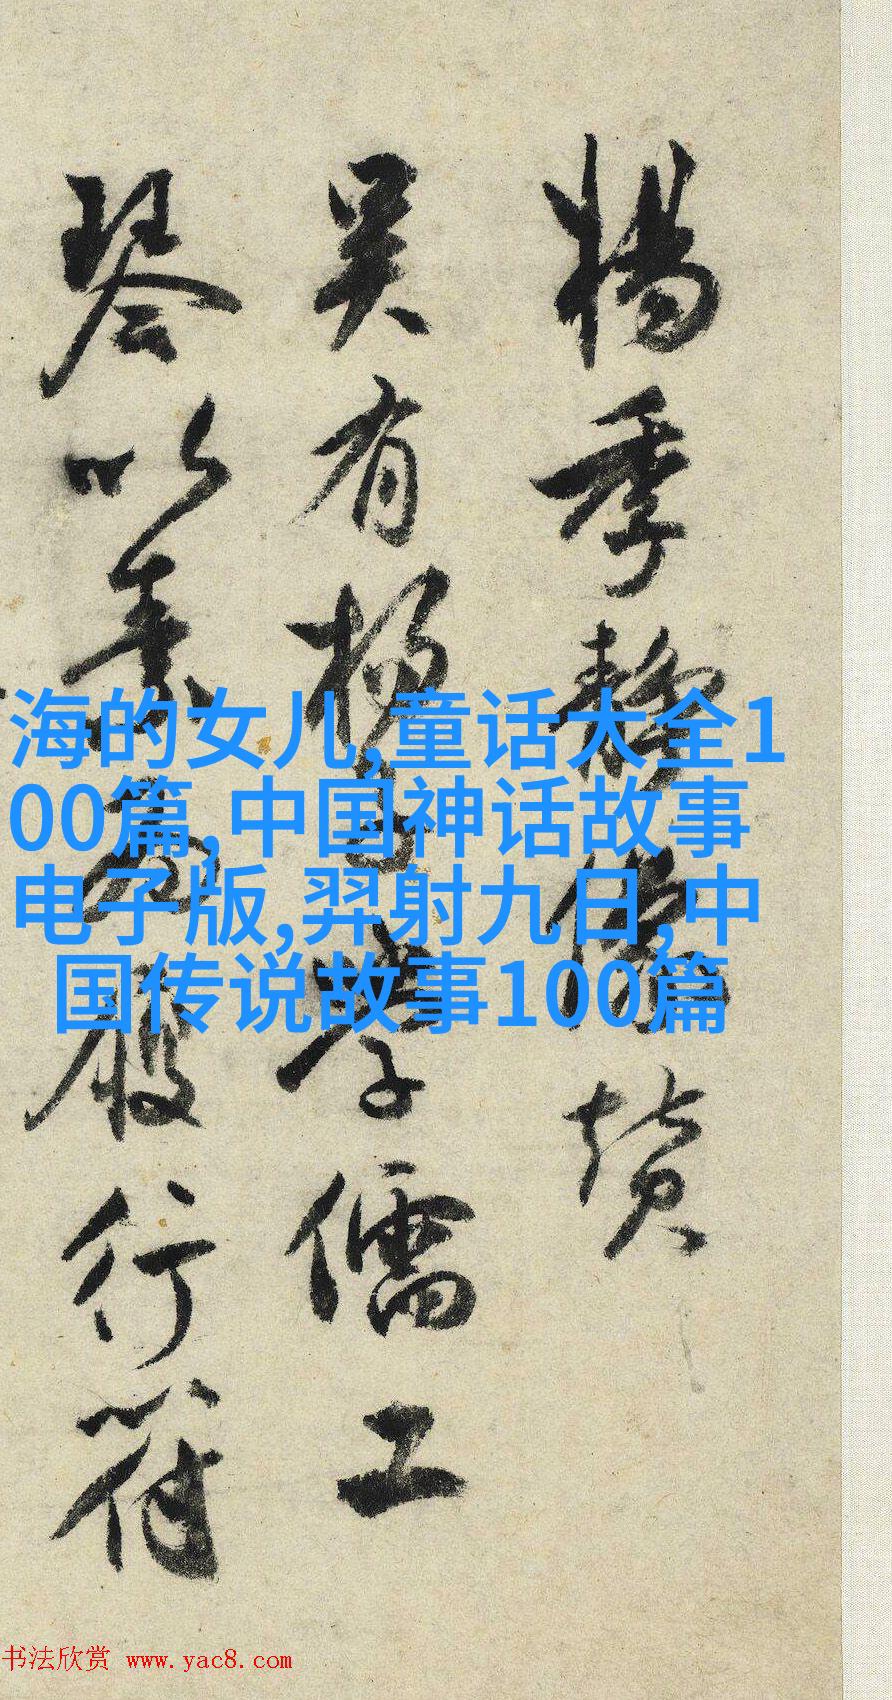 楊季静傳贊
吴有楊氏學儒工
琴以素爲履行符
海的女儿,童话大全1
00篇,中国神话故事
电子版,羿射九日,中
国传说故事100篇
书法欣赏 www.yac8.com